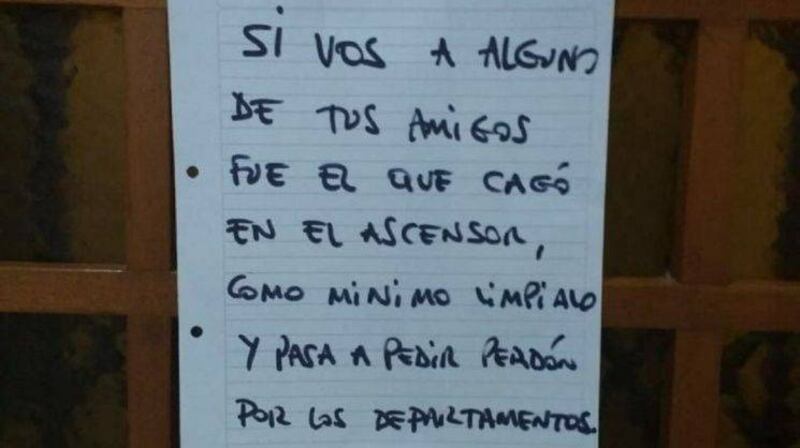 SI VOS A ALGUNO
DE TUS AMIGOS
FUE EL QUE CAGÓ
EN EL ASCENSOR,
COMO MINIMO LIMPIALO
Y PASA A PEDIR PERDÓN
POR LOS DEPARTAMENTOS.